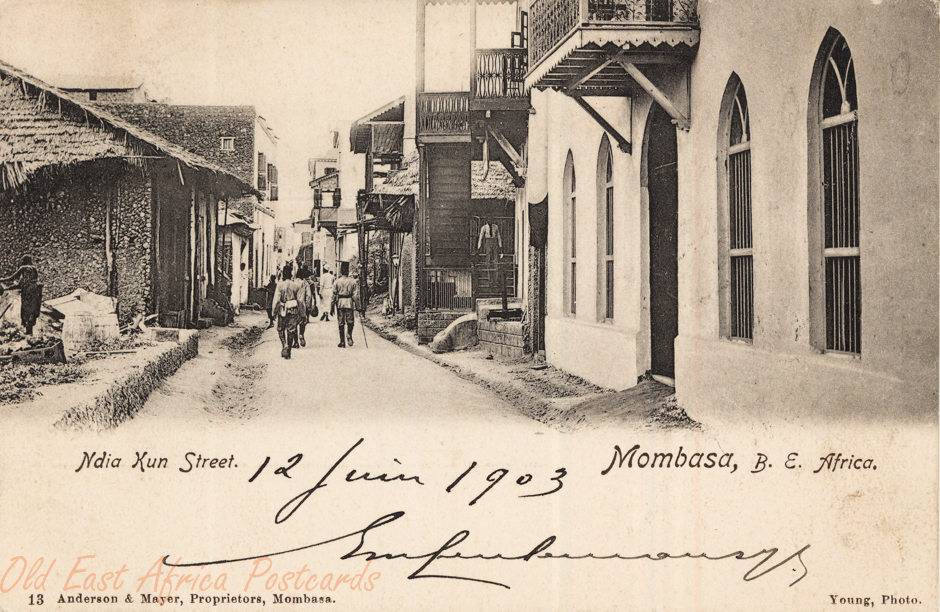 Ndia Kun Street.
Mombasa, B. E. Africa.
12 Juin 1903
Old East Africa Postcards
13 Anderson & Mayer, Proprietors, Mombasa.
Young, Photo.